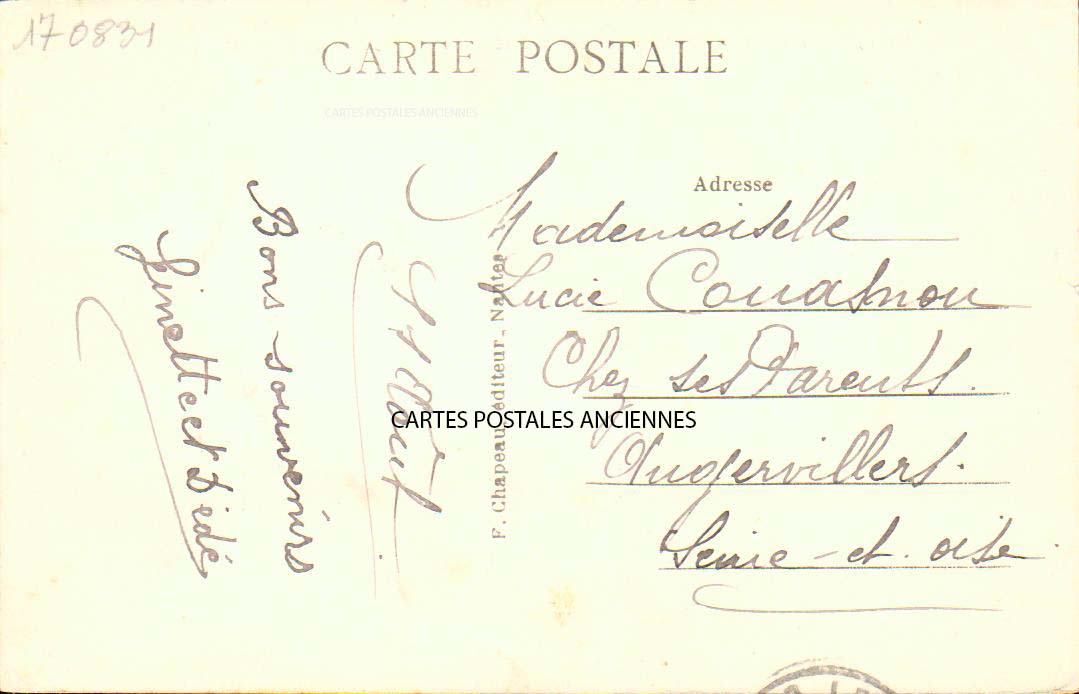 170831
CARTE POSTALE
CARTES POSTALES ANCIENNES
Adresse
Mademoiselle
Lucie Couasnou
Chez ses Parents.
Angervillers.
Seine-et-oise
CARTES POSTALES ANCIENNES
F. Chapeau, éditeur_Nantes
17 Août
Bons souvenirs
Ginette et Dédé